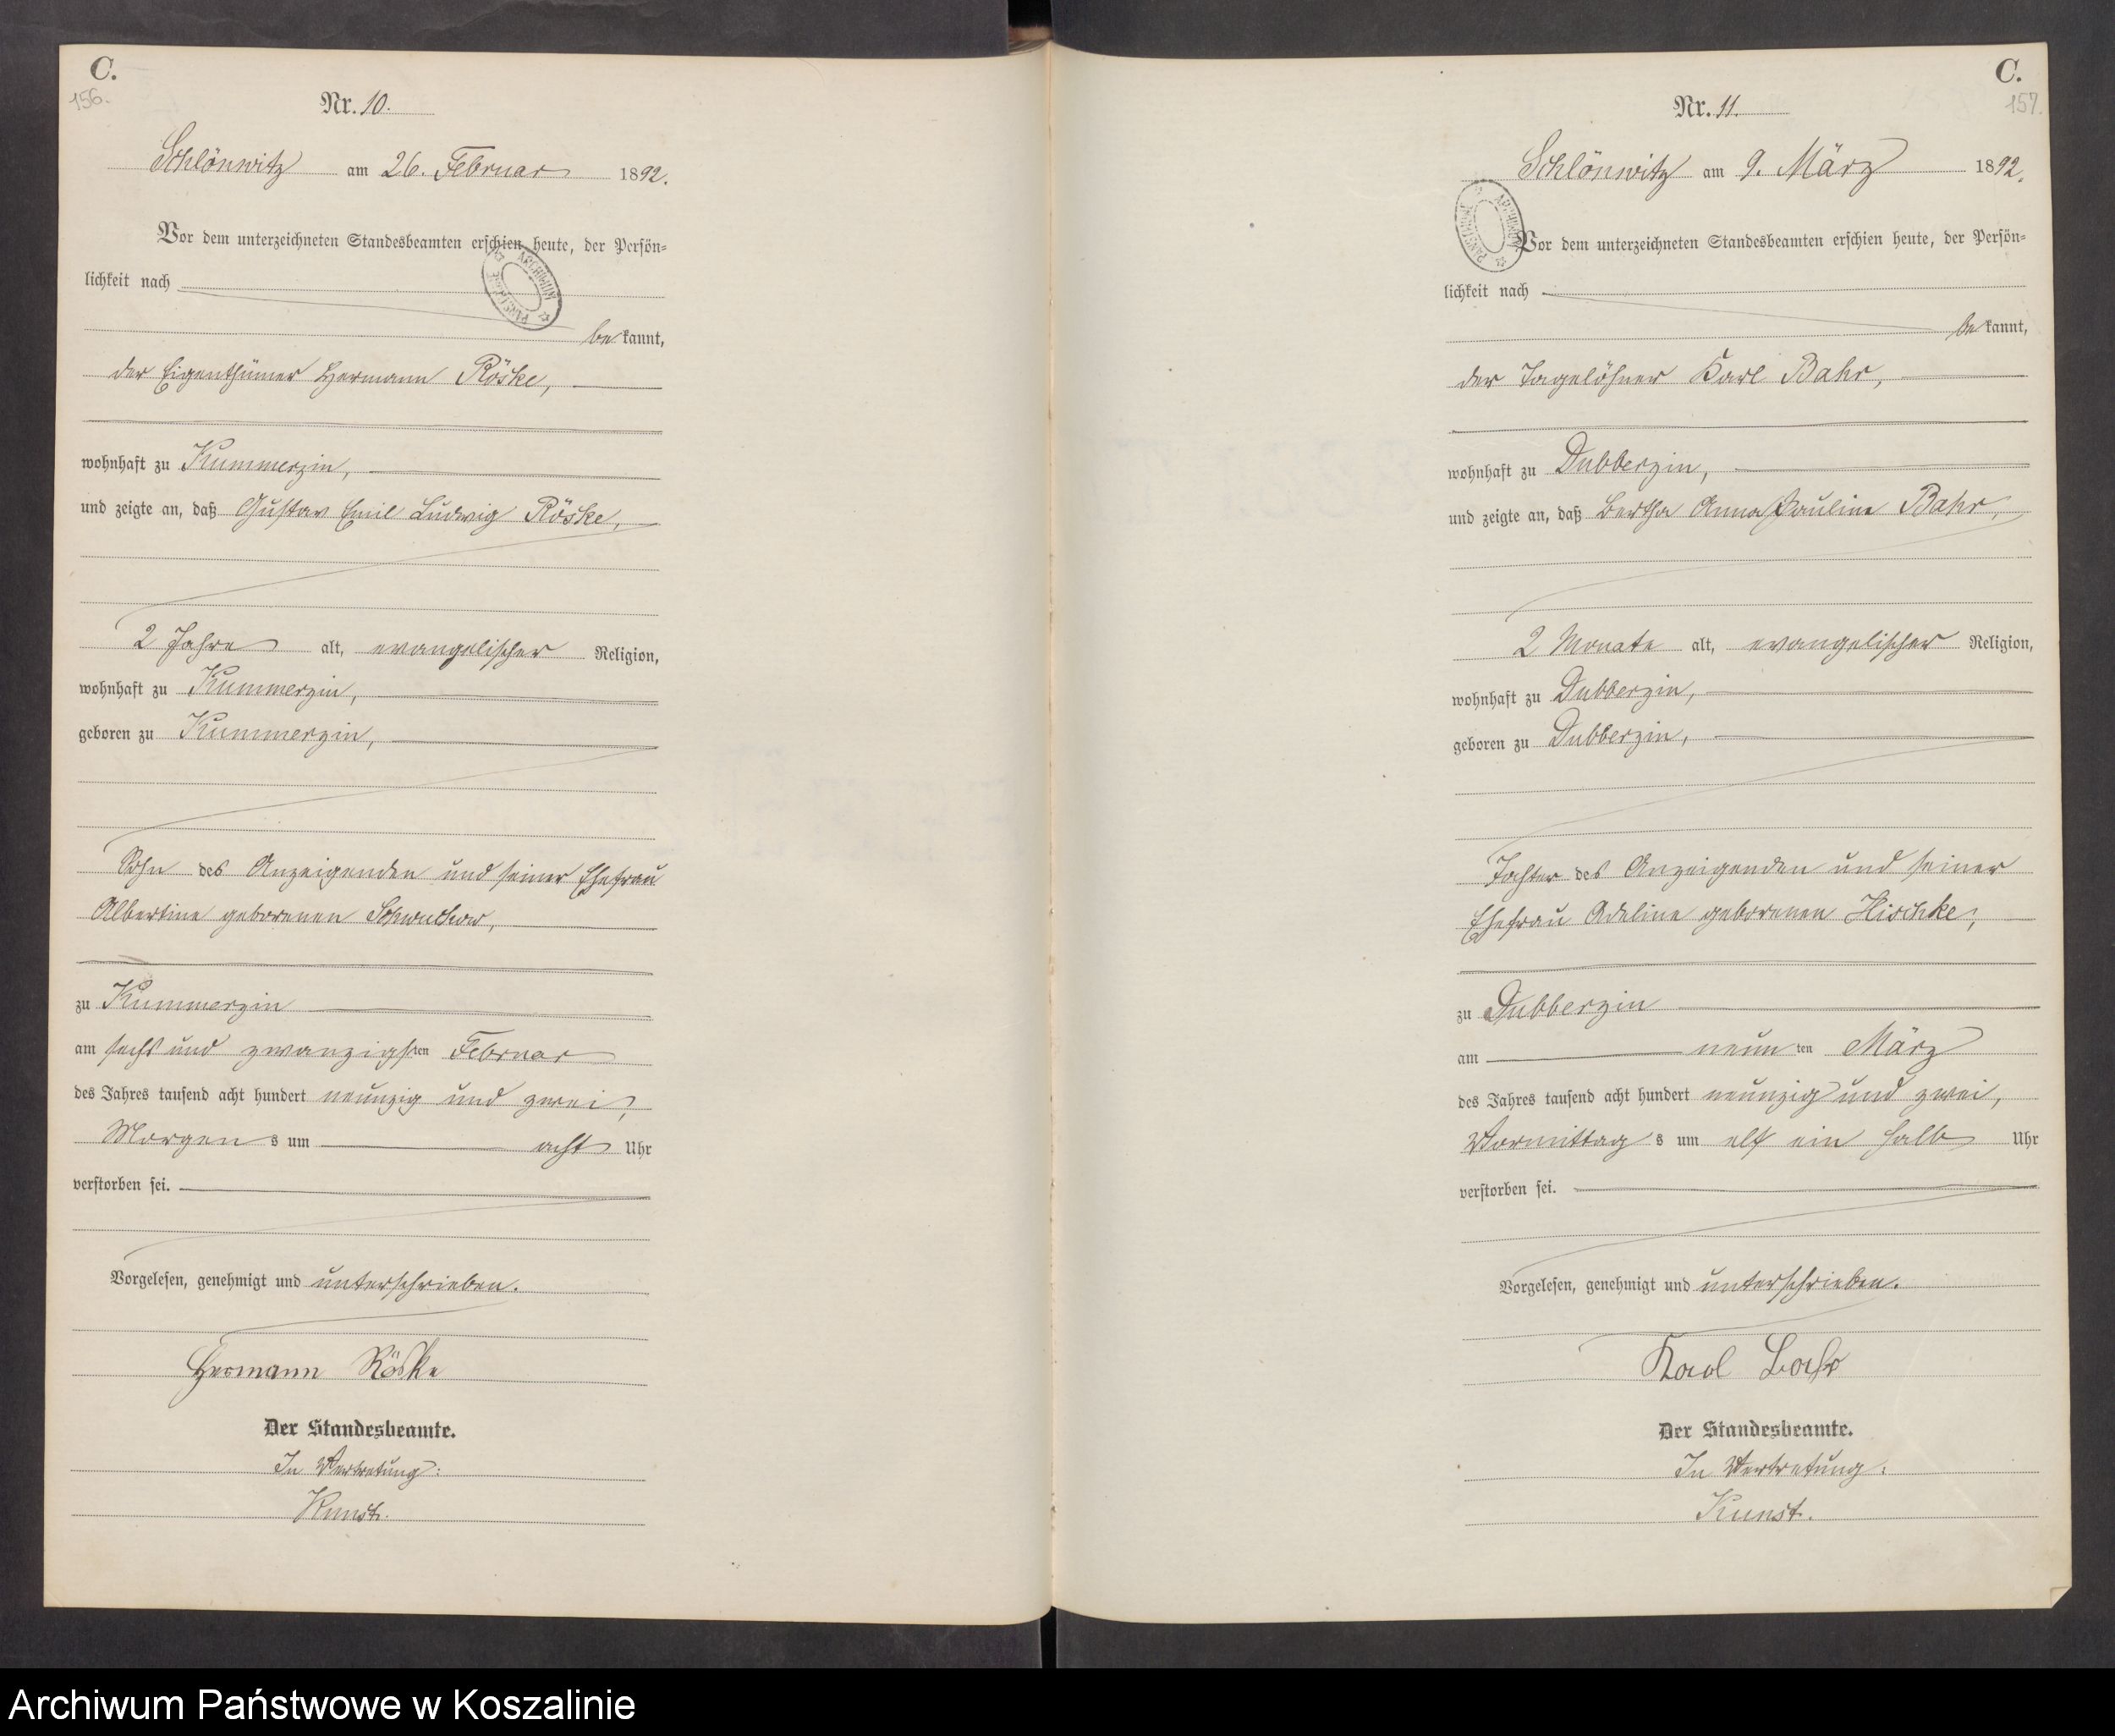 C.
156.
Nr. 10.
Schlönwitz am 26. Februar 1892.
Vor dem unterzeichneten Standesbeamten erschien heute, der Persön-
lichkeit nach
be kannt,
der Eigenthümer Hermann Röske,
wohnhaft zu Kummerzin,
und zeigte an, daß Gustav Emil Ludwig Röske,
2 Jahre alt, evangelischer Religion,
wohnhaft zu Kummerzin,
geboren zu Kummerzin,
Sohn des Anzeigenden und seiner Ehefrau
Albertine geborenen Schwuchow,
zu Kummerzin
am sechs und zwanzigsten Februar
des Jahres tausend acht hundert neunzig und zwei,
Morgens um acht Uhr
verstorben sei.
Vorgelesen, genehmigt und unterschrieben.
Hermann Röske
Der Standesbeamte.
In Vertretung:
Kunst.
C.
157.
Nr. 11.
Schlönwitz am 9. März 1892.
Vor dem unterzeichneten Standesbeamten erschien heute, der Persön-
lichkeit nach
be kannt,
der Tagelöhner Karl Bahr,
wohnhaft zu Dubberzin,
und zeigte an, daß Bertha Anna Pauline Bahr,
2 Monate alt, evangelischer Religion,
wohnhaft zu Dubberzin,
geboren zu Dubberzin,
Tochter des Anzeigenden und seiner
Ehefrau Adeline geborenen Hischke,
zu Dubberzin
am neunten März
des Jahres tausend acht hundert neunzig und zwei,
Vormittags um elf ein halb Uhr
verstorben sei.
Vorgelesen, genehmigt und unterschrieben.
Karl Bahr
Der Standesbeamte.
In Vertretung:
Kunst.
Archiwum Państwowe w Koszalinie